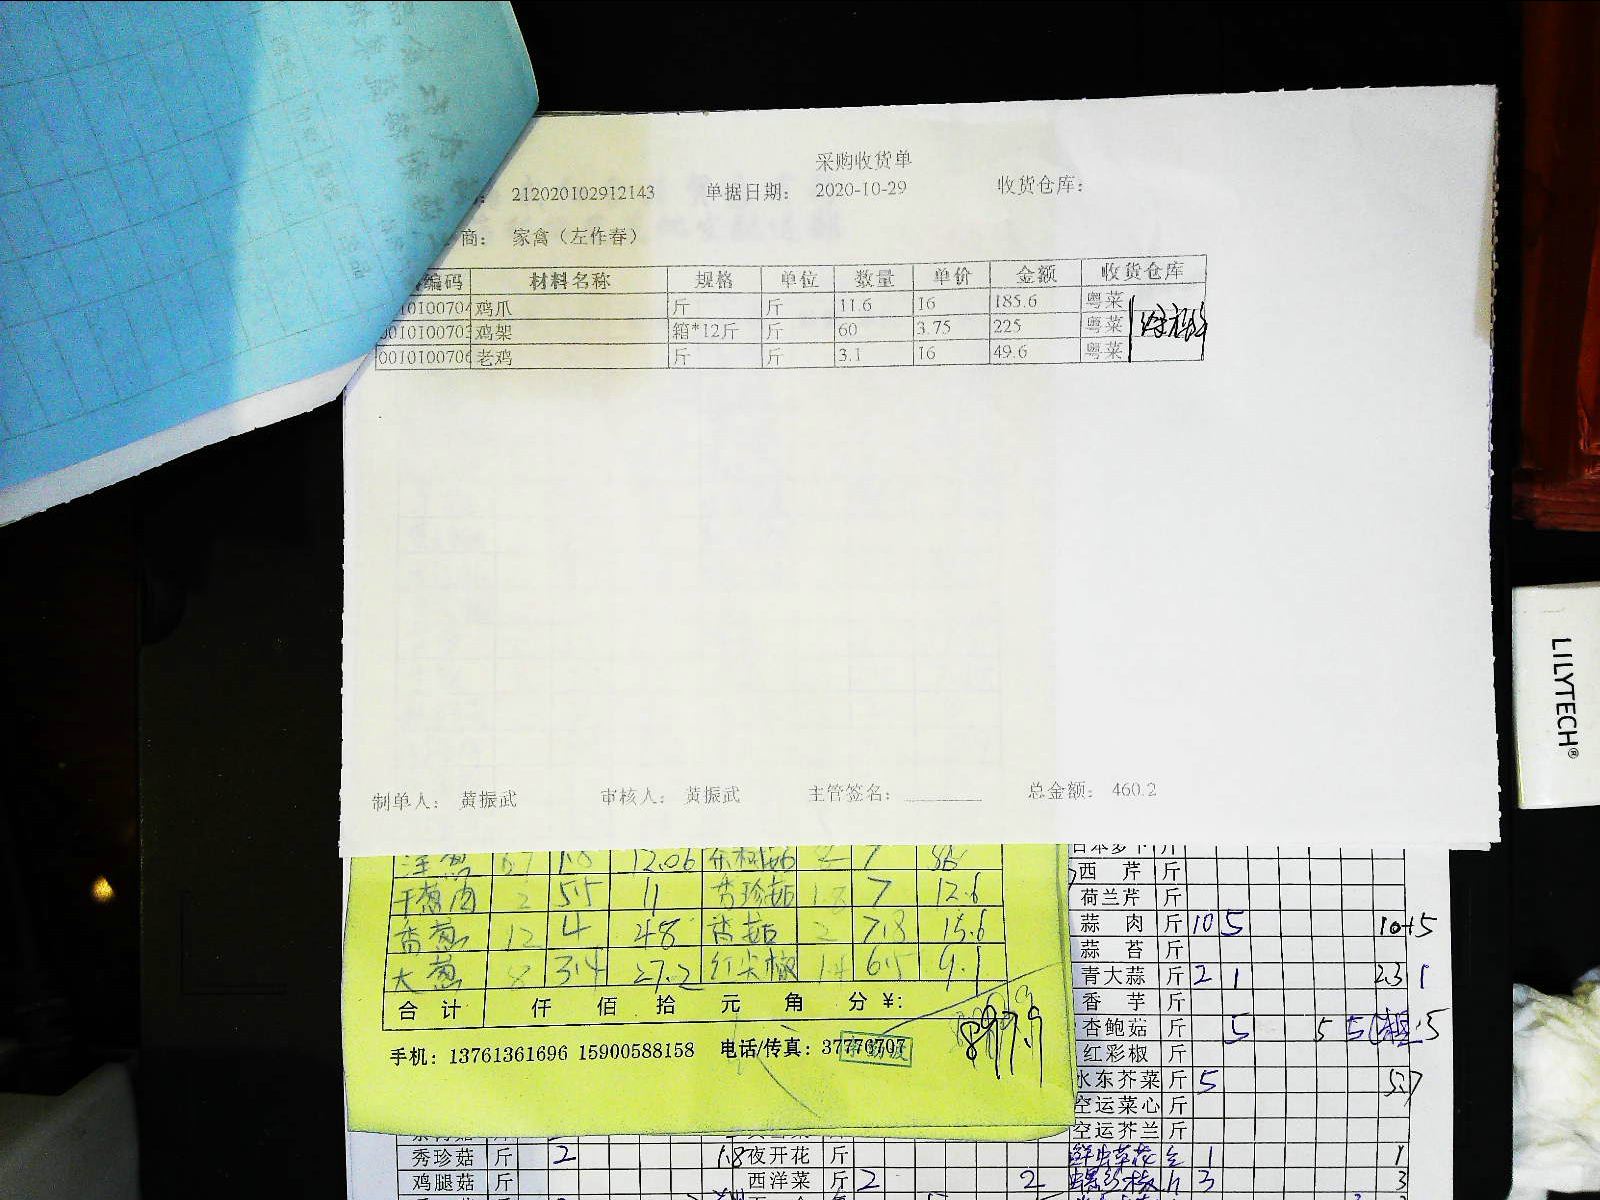 采购收货单
: 212020102912143 单据日期: 2020-10-29 收货仓库:
商: 家禽（左作春）
编码 材料名称 规格 单位 数量 单价 金额 收货仓库
010100704 鸡爪 斤 斤 11.6 16 185.6 粤菜
0010100703 鸡架 箱*12斤 斤 60 3.75 225 粤菜
0010100706 老鸡 斤 斤 3.1 16 49.6 粤菜
制单人: 黄振武 审核人: 黄振武 主管签名: 总金额: 460.2
12.06 7
干葱肉 2 5.5 11 秀珍菇 1.8 7 12.6
香葱 12 4 48 香菇 2 7.8 15.6
大葱 8 3.4 27.2 红尖椒 1.4 6.5 9.1
合计 仟 佰 拾 元 角 分 ¥:
手机: 13761361696 15900588158 电话/传真: 37776707
西 芹 斤
荷兰芹 斤
蒜 肉 斤 10 5 10+5
蒜 苔 斤
青大蒜 斤 2 1 2.3 1
香 芋 斤
杏鲍菇 斤 5 5 5
红彩椒 斤
水东芥菜 斤 5 5.7
空运菜心 斤
空运芥兰 斤
秀珍菇 斤 2 1.8 夜开花 斤 1 1
鸡腿菇 斤 西洋菜 斤 2 2 3 3
LILYTECH®